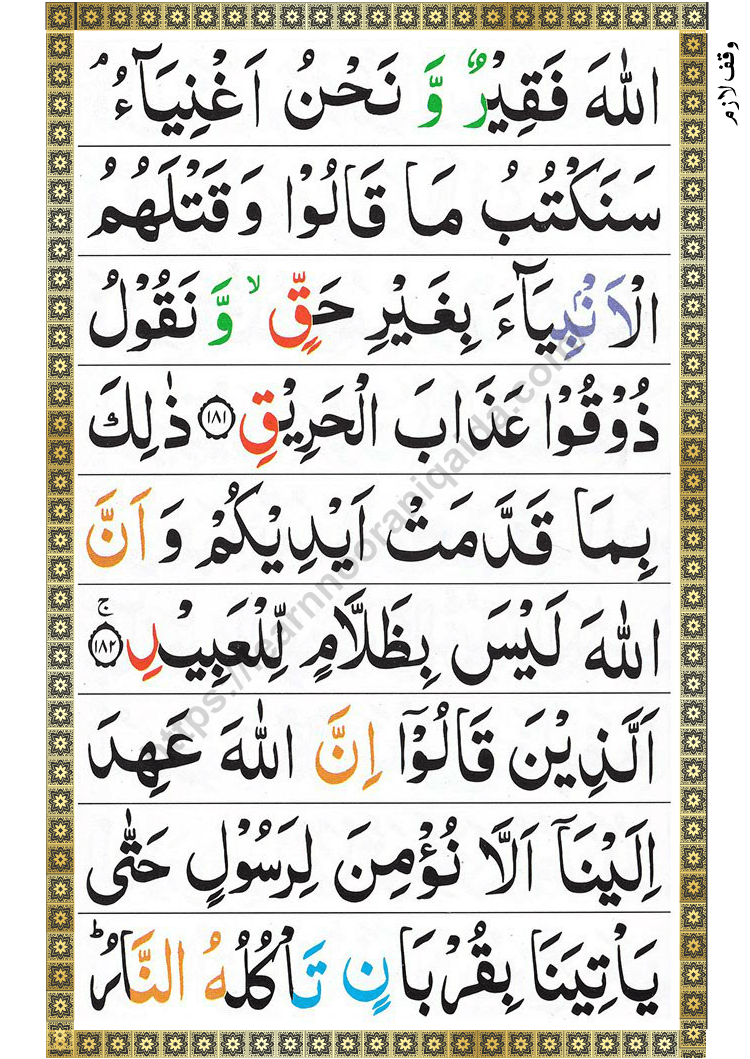 وقف لازم
اللّٰهَ فَقِيْرٌ وَّ نَحْنُ اَغْنِيَآءُ ۘ
سَنَكْتُبُ مَا قَالُوْا وَ قَتْلَهُمُ
الْاَنْۢبِيَآءَ بِغَيْرِ حَقٍّ ۙ وَّ نَقُوْلُ
ذُوْقُوْا عَذَابَ الْحَرِيْقِ ۝۱۸۱ ذٰلِكَ
بِمَا قَدَّمَتْ اَيْدِيْكُمْ وَ اَنَّ
اللّٰهَ لَيْسَ بِظَلَّامٍ لِّلْعَبِيْدِ ۝۱۸۲ ۚ
اَلَّذِيْنَ قَالُوْۤا اِنَّ اللّٰهَ عَهِدَ
اِلَيْنَاۤ اَلَّا نُؤْمِنَ لِرَسُوْلٍ حَتّٰى
يَاْتِيَنَا بِقُرْبَانٍ تَاْكُلُهُ النَّارُ ؕ
https://learnnooraniqaida.com